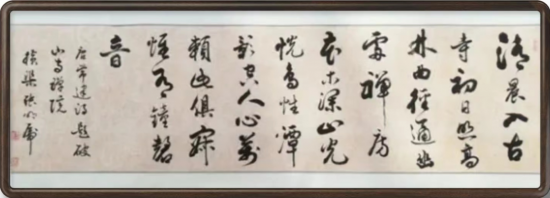 清晨入古
寺初日照高
林曲徑通幽
處禪房
花木深山光
悦鳥性潭
影空人心萬
籟此俱寂
惟聞鐘磬
音
唐常建詩題破
山寺禪院